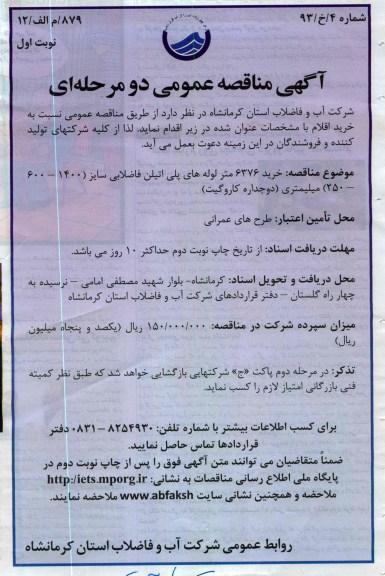 شماره ۴/خ/۹۳
۸۷۹/م الف/۱۲
نوبت اول
آگهی مناقصه عمومی دو مرحله‌ای
شرکت آب و فاضلاب استان کرمانشاه در نظر دارد از طریق مناقصه عمومی نسبت به
خرید اقلام با مشخصات عنوان شده در زیر اقدام نماید. لذا از کلیه شرکتهای تولید
کننده و فروشندگان در این زمینه دعوت بعمل می آید.
موضوع مناقصه: خرید ۶۳۷۶ متر لوله های پلی اتیلن فاضلابی سایز (۱۴۰۰ – ۶۰۰
– ۲۵۰) میلیمتری (دوجداره کاروگیت)
محل تأمین اعتبار: طرح های عمرانی
مهلت دریافت اسناد: از تاریخ چاپ نوبت دوم حداکثر ۱۰ روز می باشد.
محل دریافت و تحویل اسناد: کرمانشاه- بلوار شهید مصطفی امامی – نرسیده به
چهار راه گلستان – دفتر قراردادهای شرکت آب و فاضلاب استان کرمانشاه
میزان سپرده شرکت در مناقصه: ۱۵۰/۰۰۰/۰۰۰ ریال (یکصد و پنجاه میلیون
ریال)
تذکر: در مرحله دوم پاکت «ج» شرکتهایی بازگشایی خواهد شد که طبق نظر کمیته
فنی بازرگانی امتیاز لازم را کسب نماید.
برای کسب اطلاعات بیشتر با شماره تلفن: ۸۲۵۴۹۳۰ – ۰۸۳۱ دفتر
قراردادها تماس حاصل نمایید.
ضمناً متقاضیان می توانند متن آگهی فوق را پس از چاپ نوبت دوم در
پایگاه ملی اطلاع رسانی مناقصات به نشانی: http:/iets.mporg.ir
ملاحضه و همچنین نشانی سایت www.abfaksh ملاحضه نمایند.
روابط عمومی شرکت آب و فاضلاب استان کرمانشاه